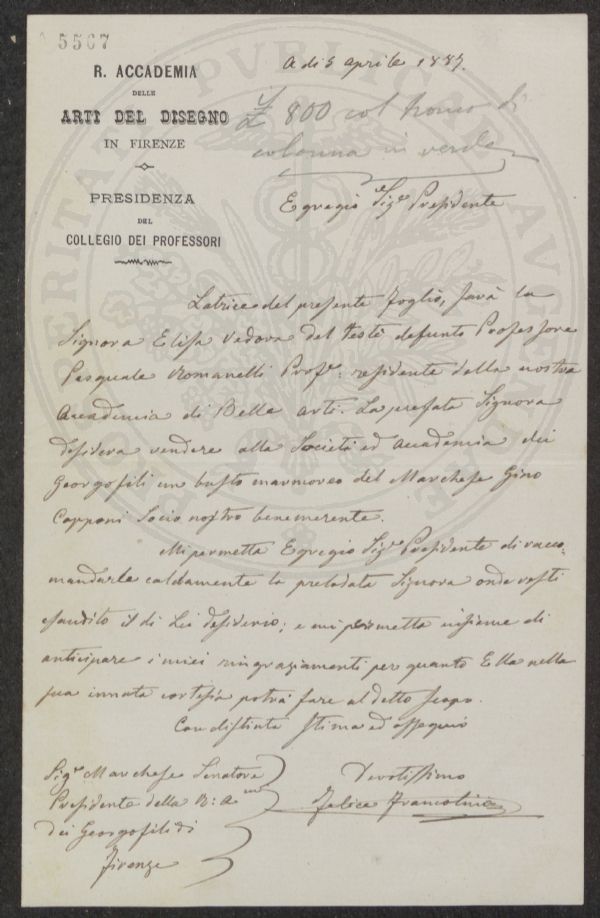 5507
R. ACCADEMIA
DELLE
ARTI DEL DISEGNO
IN FIRENZE
PRESIDENZA
DEL
COLLEGIO DEI PROFESSORI
A di 5 aprile 1887.
£ 800 col tronco di
colonna in verde
Egregio Sig.re Presidente
Latrice del presente foglio, sarà la
Signora Elisa Vedova del testè defunto Professore
Pasquale Romanelli Prof.e residente della nostra
Accademia di Belle arti. La prefata Signora
desidera vendere alla Società ed Accademia dei
Georgofili un busto marmoreo del Marchese Gino
Capponi Socio nostro benemerente.
Mi permetta Egregio Sig.e Presidente di racco-
mandarle caldamente la prelodata Signora onde resti
esaudito il di Lei desiderio; e mi permetta insieme di
anticipare i miei ringraziamenti per quanto Ella nella
sua innata cortesia potrà fare al detto scopo.
Con distinta stima ed ossequio
Devotissimo
Felice Francolini
Sig.r Marchese Senatore
Presidente della R: A
dei Georgofili di
Firenze
PROSPERITATI PVBLICAE AVGENDAE